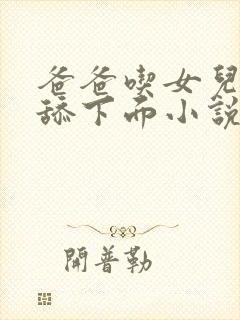 爸爸喫女兒
舔下面小說
開普勒